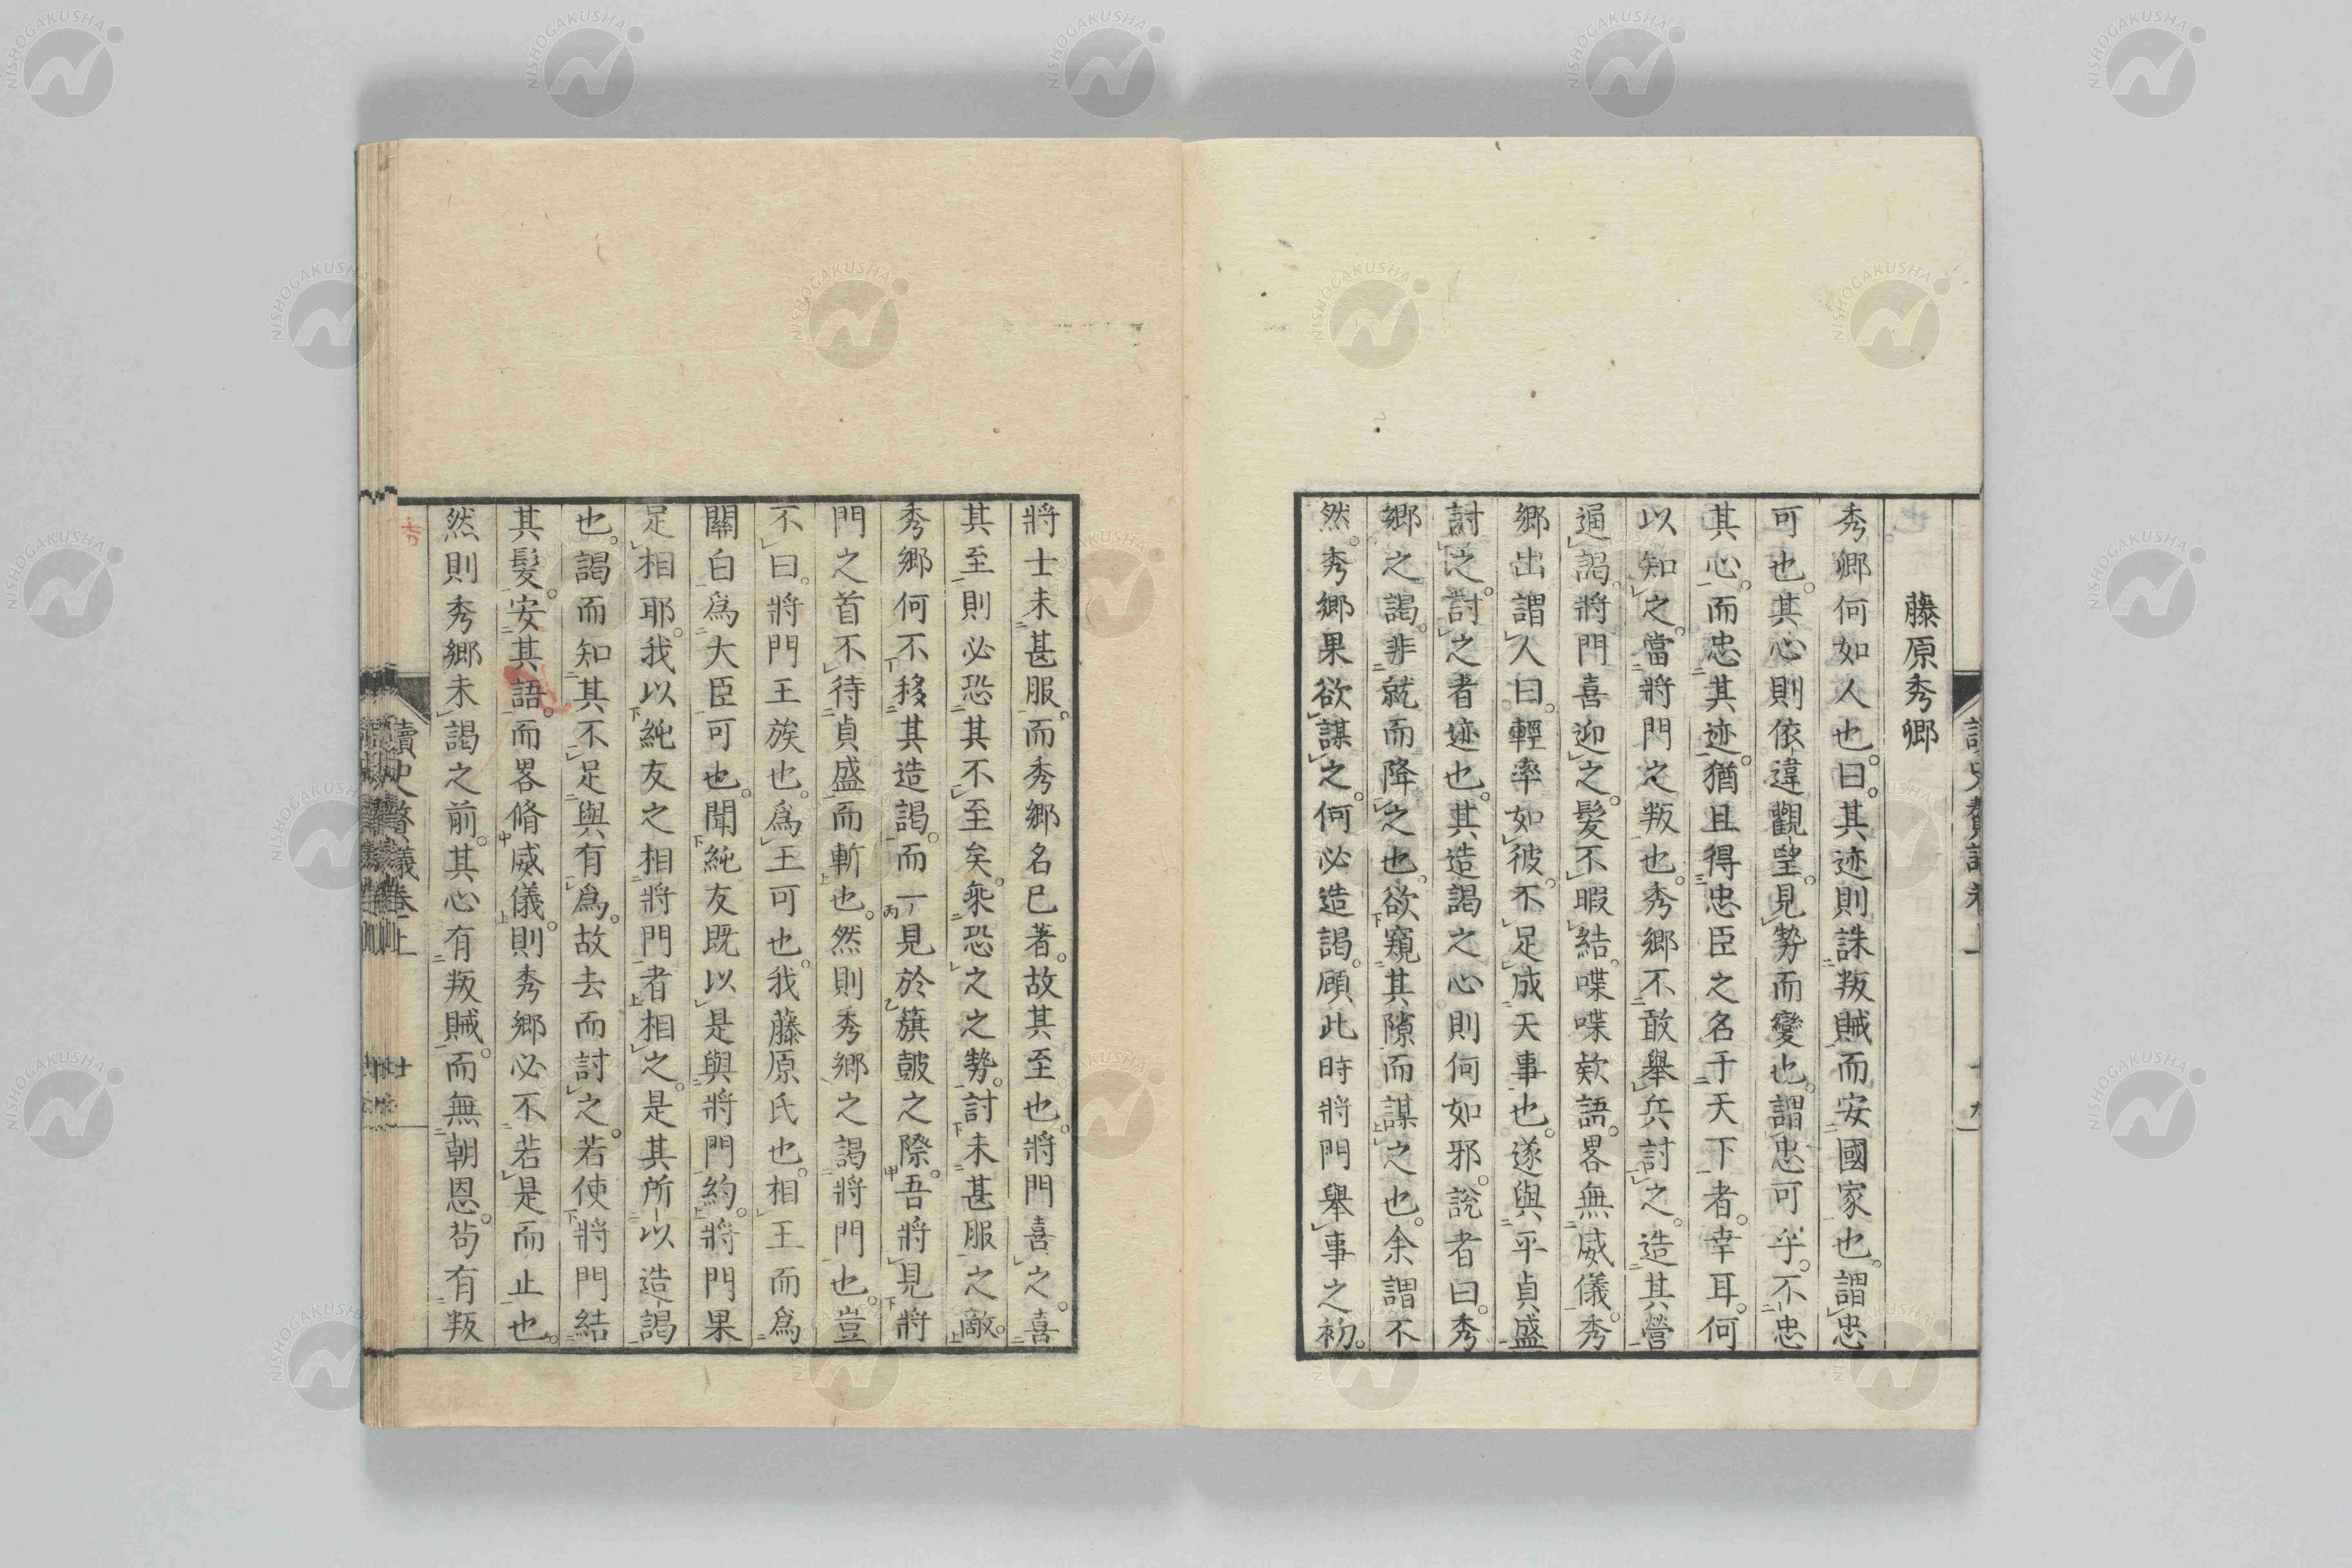 藤原秀郷
秀郷何如人也。曰。其迹則誅叛賊而安國家也。謂忠
可也。其心則依違觀望。見勢而變也。謂忠可乎。不忠
其心。而忠其迹。猶且得忠臣之名于天下者。幸耳。何
以知之。當將門之叛也。秀郷不敢舉兵討之。造其營
通謁。將門喜迎之。髮不暇結。喋喋欸語。畧無威儀。秀
郷出謂人曰。輕率如彼。不足成天事也。遂與平貞盛
討之。討之者迹也。其造謁之心則何如邪。說者曰。秀
郷之謁。非就而降之也。欲窺其隙而謀之也。余謂不
然。秀郷果欲謀之。何必造謁。顧此時將門舉事之初。
將士未甚服。而秀郷名已著。故其至也。將門喜之。喜
其至則必恐其不至矣。乘恐之之勢。討未甚服之敵。
秀郷何不移其造謁。而一見於籏皷之際。吾將見將
門之首不待貞盛而斬也。然則秀郷之謁將門也。豈
不曰。將門王族也。爲王可也。我藤原氏也。相王而爲
關白爲大臣可也。聞純友既以是與將門約。將門果
足相耶。我以純友之相將門者相之。是其所以造謁
也。謁而知其不足與有爲。故去而討之。若使將門結
其髮。安其語。而畧脩威儀。則秀郷必不若是而止也。
然則秀郷未謁之前。其心有叛賊。而無朝恩。苟有叛
讀史贅議卷上
廿
NISHOGAKUSHA